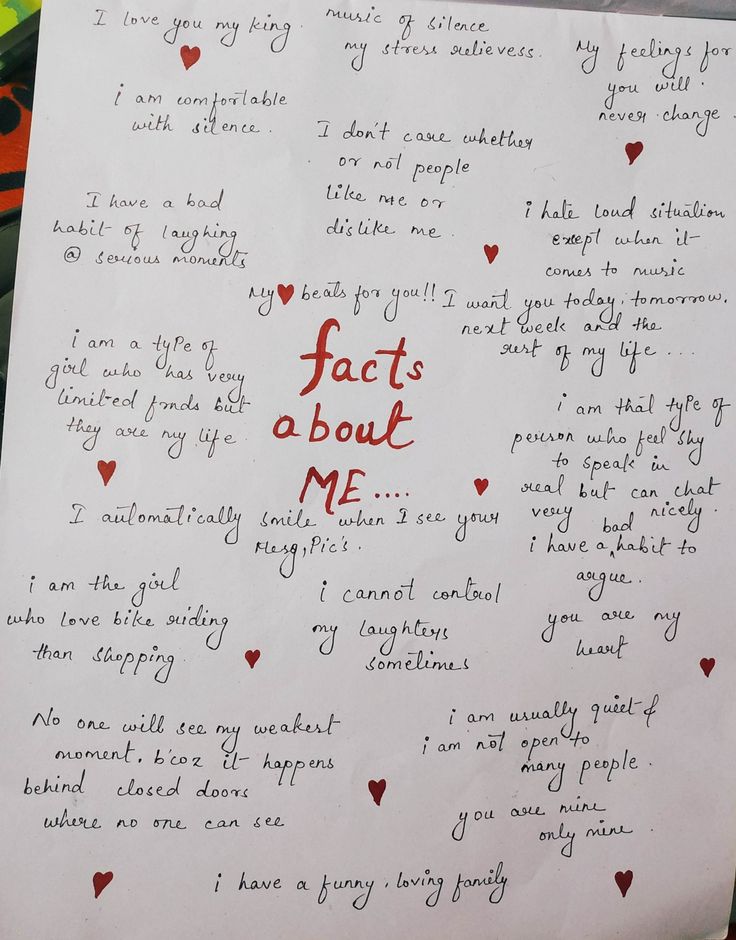 I love you my king.
music of silence
my stress relievess.
My feelings for
you will.
never change.
i am comfortable
with silence.
I don't care whether
or not people
like me or
dislike me.
I have a bad
habit of laughing
@ serious moments
i hate loud situation
except when it
comes to music
My ♥ beats for you!!
I want you today, tomorrow.
next week and the
rest of my life ...
facts
about
ME....
i am a type of
girl who has very
limited frnds but
they are my life.
i am that type of
person who feel shy
to speak in
real but can chat
very nicely.
I automatically smile when I see your
Mesg, Pic's.
i have a bad habit to
argue.
i am the girl
who love bike riding
than shopping.
i cannot control
my laughters
sometimes
you are my
heart
No one will see my weakest
moment. b'coz it happens
behind closed doors
where no one can see
i am usually quiet &
i am not open to
many people.
you are mine
only mine.
i have a funny, loving family